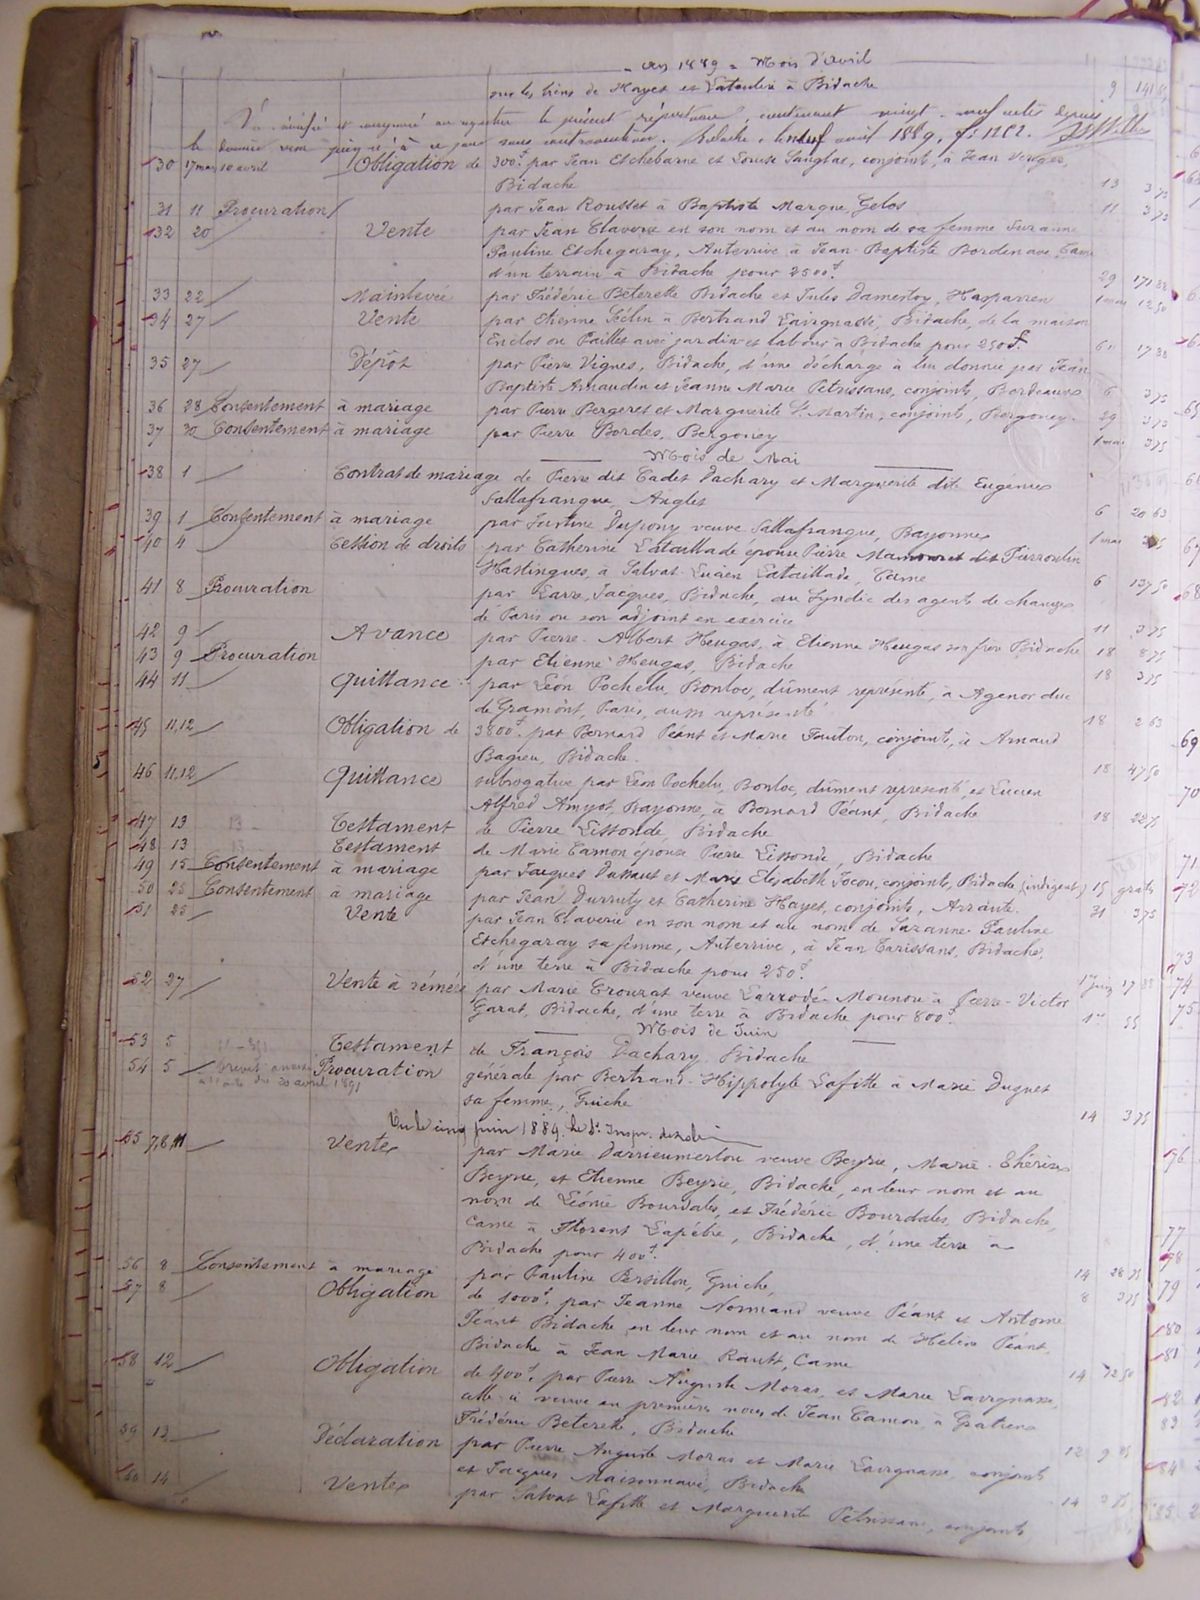 An 1889 - Mois d'Avril
sur les biens de Hayet et Lataulère à Bidache 9 141
Vu, vérifié et au registre le présent répertoire, contenant vingt-neuf actes depuis
le dernier visa jusqu'à ce jour sans contravention. Bidache, le neuf avril 1889.
130 17 mars 10 avril Obligation de 300f. par Jean Etchebarne et Louise Sanglar, conjoints, à Jean Verges,
Bidache 13 3 75
31 11 Procuration par Jean Rousset à Baptiste Marque, Gelos 11 3 75
132 20 Vente par Jean Claverie en son nom et au nom de sa femme Suzanne
Pauline Etchegaray, Auterrive à Jean-Baptiste Bordenave, Came
d'un terrain à Bidache pour 2500f 29 171 88
33 22 Mainlevée par Frédéric Béterette Bidache et Jules Damestoy, Hasparren 1 mai 12 50
34 27 Vente par Etienne Félin à Bertrand Lavignasse, Bidache, de la maison
Enclos ou Pailles avec jardin et labour à Bidache pour 250f. 6 17 88
35 27 Dépôt par Pierre Vignes, Bidache, d'une décharge à lui donnée par Jean
Baptiste Arnaudin et Jeanne Marie Petrissans, conjoints, Bordeaux 6 3 75
36 28 Consentement à mariage par Pierre Bergeret et Marguerite St Martin, conjoints, Bergouey. 29 3 75
37 30 Consentement à mariage par Pierre Bordes, Bergouey 1 mai 3 75
Mois de Mai
38 1 Contrat de mariage de Pierre dit Cadet Dachary et Marguerite dit Eugénie
Sallafranque, Angles 6 20 63
39 1 Consentement à mariage par Justine Dupony veuve Sallafranque, Bayonne 1 mai
40 4 Cession de droits par Catherine Lataillade épouse Pierre Mamouret dit Pierroulin
Hastingues, à Salvat-Lucien Lataillade, Came 6 137 50
41 8 Procuration par Larre, Jacques, Bidache, au Syndic des agents de change
de Paris ou son adjoint en exercice 11 3 75
42 9 Avance par Pierre-Albert Heugas, à Etienne Heugas son frère Bidache 18 8 75
43 9 Procuration par Etienne Heugas, Bidache 18 3 75
44 11 Quittance par Léon Pochelu, Bonloc, dûment représenté, à Agenor duc
de Gramont, Paris, aussi représenté 18 2 63
45 11,12 Obligation de 3800f. par Bernard Péant et Marie Fouton, conjoints, à Arnaud
Bagieu, Bidache. 18 47 50
46 11,12 Quittance subrogative par Léon Pochelu, Bonloc, dûment représenté, et Lucien
Alfred Amyot, Bayonne, à Bernard Péant, Bidache 18 22 75
47 13 Testament de Pierre Lissonde, Bidache
48 13 Testament de Marie Camon épouse Pierre Lissonde, Bidache
49 15 Consentement à mariage par Jacques Dussaut et Marie Elisabeth Jocou, conjoints, Bidache (indigents) 15 gratis
50 25 Consentement à mariage par Jean Durruty et Catherine Hayet, conjoints, Arraute. 31 3 75
51 25 Vente par Jean Claverie en son nom et au nom de Suzanne Pauline
Etchegaray sa femme, Auterrive, à Jean Carissans, Bidache,
d'une terre à Bidache pour 250f 1 juin 17 88
52 27 Vente à réméré par Marie Trouzat veuve Larrodé-Mounou à Pierre-Victor
Garat, Bidache, d'une terre à Bidache pour 800f. 1er 55
Mois de Juin
53 5 Testament de François Dachary Bidache
54 5 brevet annexé à l'acte du 20 avril 1891 Procuration générale par Bertrand-Hippolyte Lafitte à Marie Duguet
sa femme, Guiche 14 3 75
Vu le cinq juin 1889. le S. Inspr.
55 7,8,11 Vente par Marie Darrieumerlou veuve Beyrie, Marie-Thérèse
Beyrie, et Etienne Beyrie, Bidache, en leur nom et au
nom de Léonie Bourdalès, et Frédéric Bourdalès, Bidache,
Came à Florent Lapébie, Bidache, d'une terre à
Bidache pour 400f. 14 28 75
56 8 Consentement à mariage par Pauline Persillon, Guiche 8 3 75
57 8 Obligation de 1000f, par Jeanne Normand veuve Péant et Antoine
Péant Bidache en leur nom et au nom de Hélène Péant,
Bidache à Jean Marie Rauth, Came 14 12 50
58 12 Obligation de 400f par Pierre Auguste Moras, et Marie Lavignasse,
celle-ci veuve en premières noces de Jean Camou à Gratien
Frédéric Béterette, Bidache 12
59 12 Déclaration par Pierre Auguste Moras et Marie Lavignasse, conjoints
et Jacques Maisonnave, Bidache 14 3 75
60 14 Vente par Salvat Lafitte et Marguerite Petrissans, conjoints